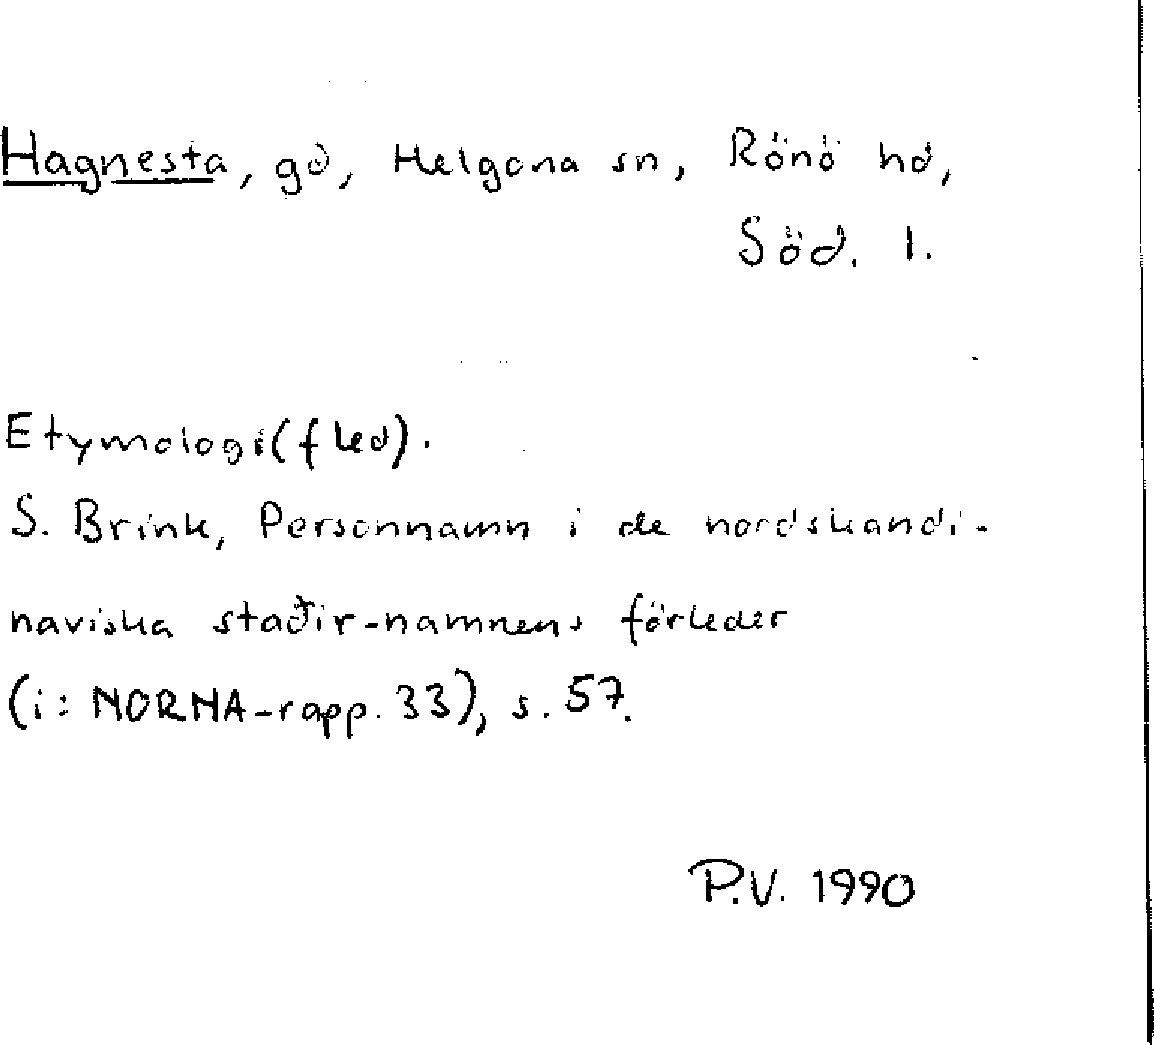 Hagnesta, gd, Helgona sn, Rönö hd,
Söd. l.
Etymologi (f led).
S. Brink, Personnamn i de nordskandi-
naviska staðir-namnens förleder
(i: NORNA-rapp. 33), s. 57.
P.V. 1990